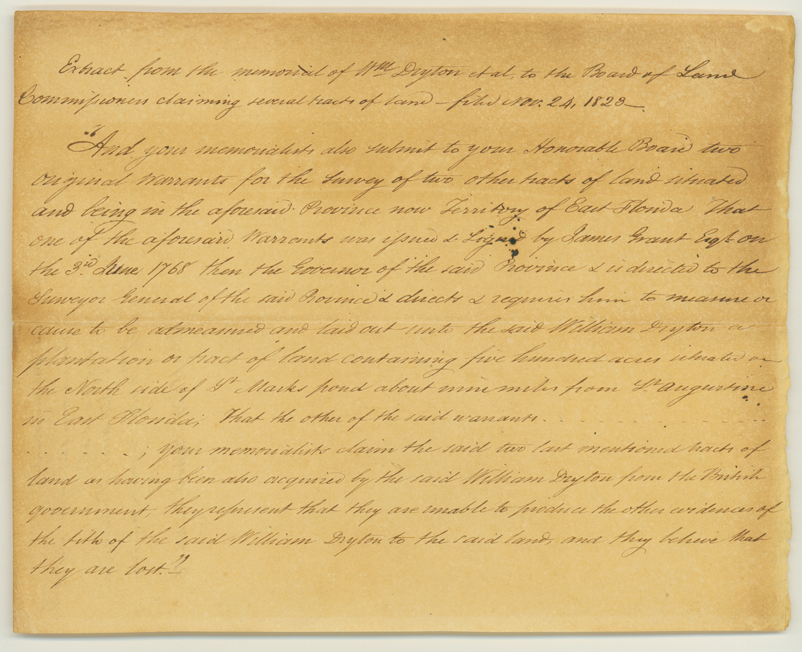 Extract from the memorial of Wm Dryton et al. to the Board of Land
Commissioners claiming several tracts of land – filed Nov. 24, 1823.
"And your memorialists also submit to your Honorable Board two
original Warrants for the Survey of two other tracts of land situated
and being in the aforesaid Province now Territory of East Florida That
one of the aforesaid Warrants was issued & Signed by James Grant Esqr. on
the 3rd June 1768 then the Governor of the said Province & is directed to the
Surveyor General of the said Province & directs & requires him to measure or
cause to be admeasured and laid out unto the said William Dryton a
plantation or tract of land containing five hundred acres situated on
the North side of St Marks pond about nine miles from St. Augustine
in East Florida; That the other of the said warrants . . . . . . . . . . . .
. . . . . . . ; your memorialists claim the said two last mentioned tracts of
land as having been also acquired by the said William Dryton from the British
government, they represent that they are unable to produce the other evidences of
the title of the said William Dryton to the said land, and they believe that
they are lost."